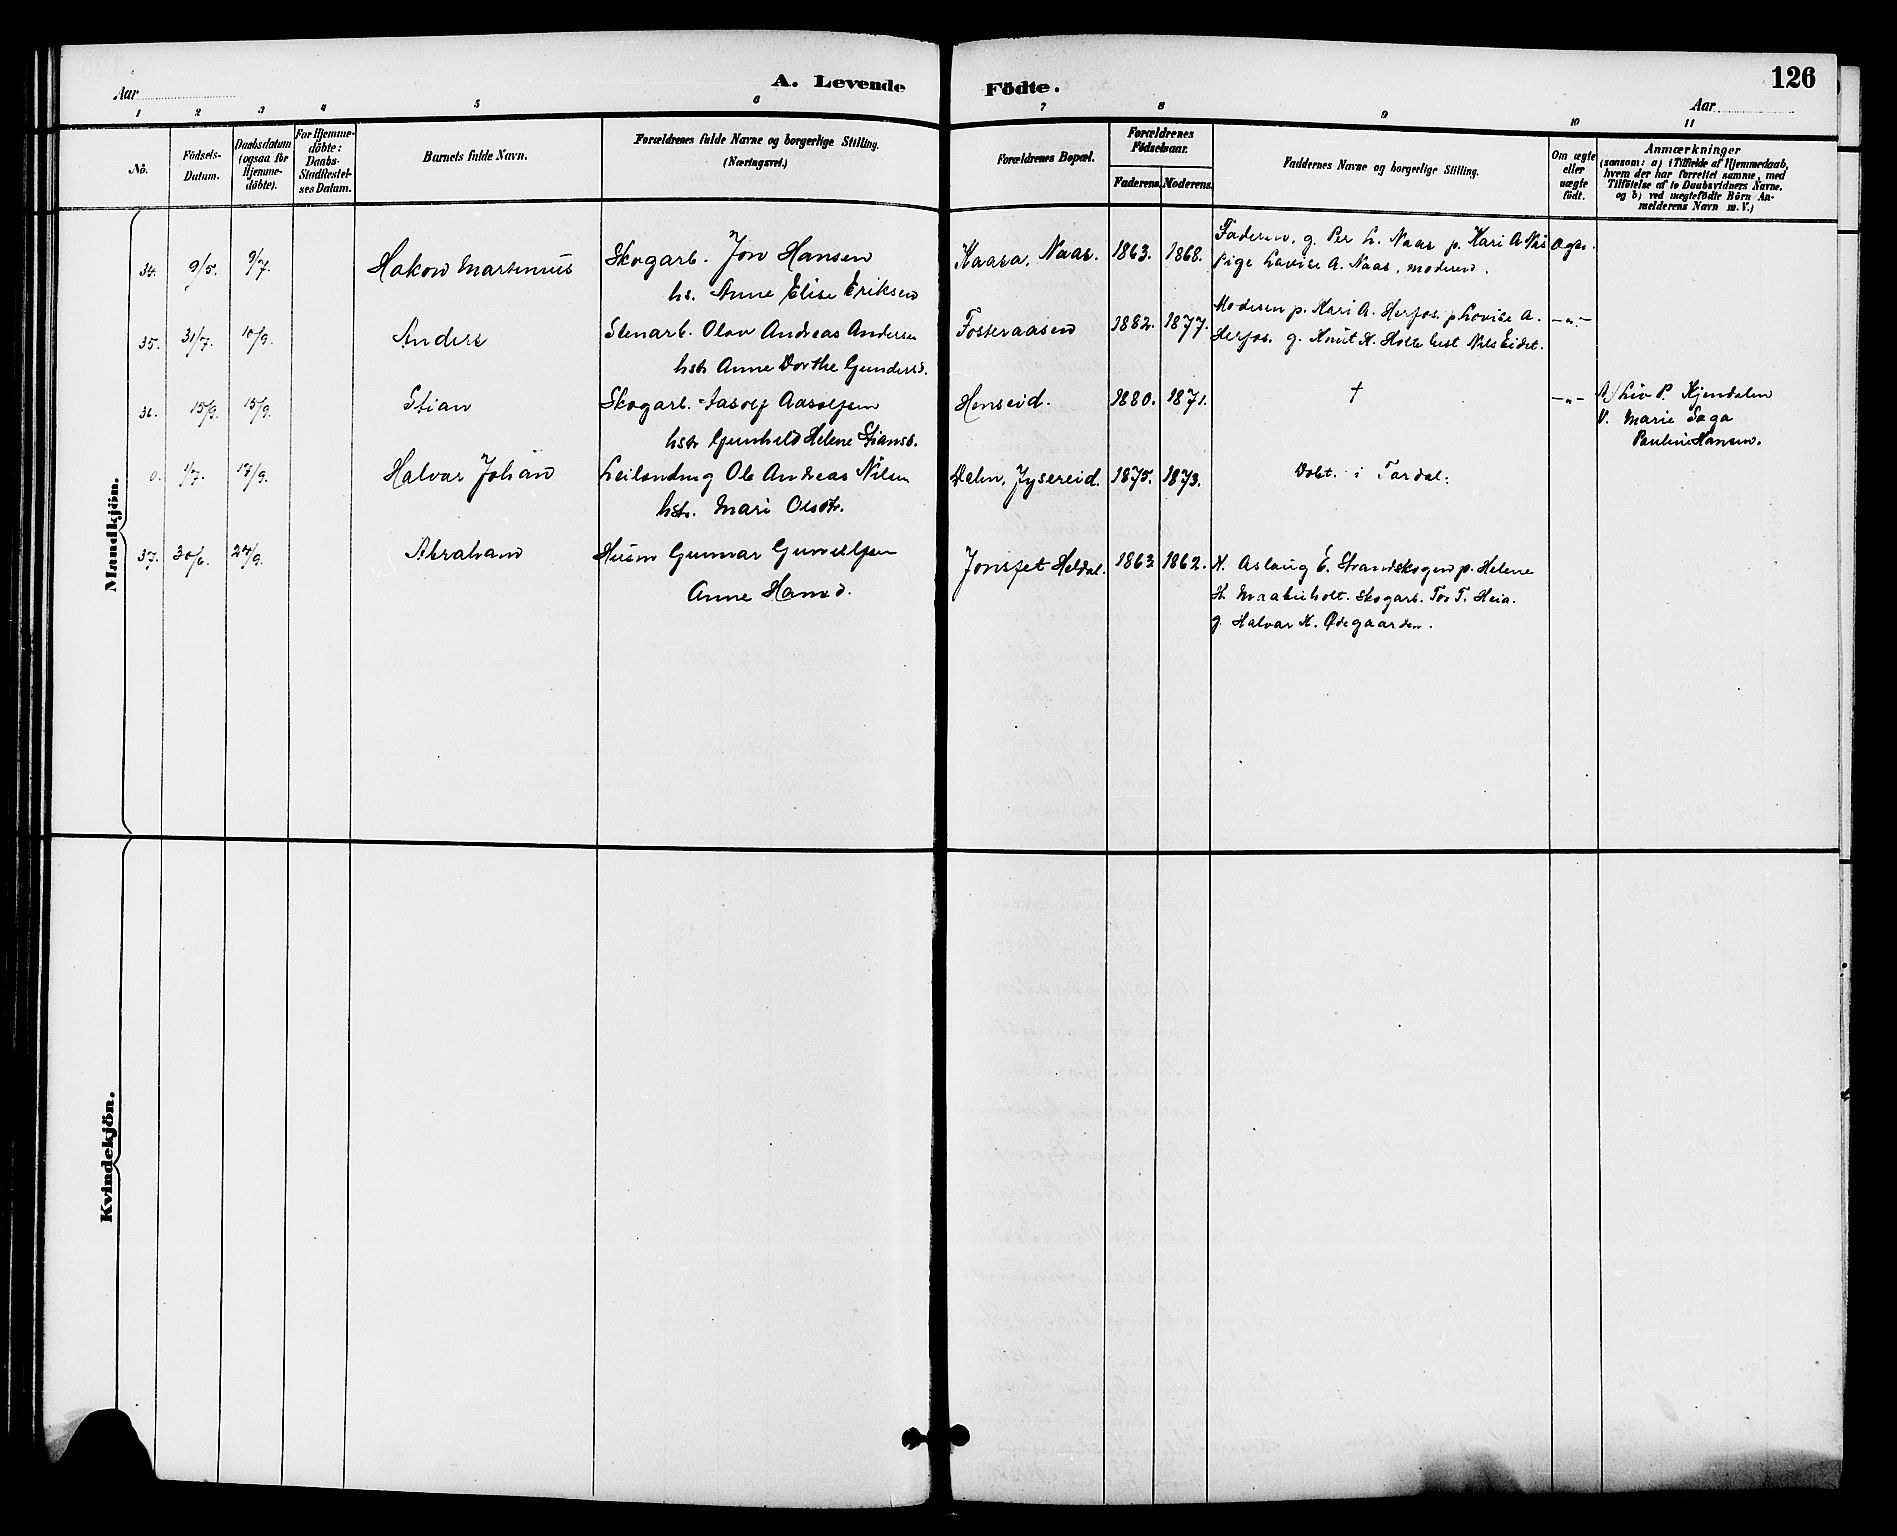 A. Levende Födte.
126
Aar
Aar
1 2 3 4 5 6 7 8 9 10 11
No.
Födsels-
Datum.
Daabsdatum
(ogsaa for
Hjemme-
döbte).
For Hjemme-
döbte:
Daabs-
Stadfæstel-
ses Datum.
Barnets fulde Navn.
Forældrenes fulde Navne og borgerlige Stilling.
(Næringsvei.)
Forældrenes Bopæl.
Forældrenes
Födselsaar.
Faderens. Moderens.
Faddernes Navne og borgerlige Stilling.
Om ægte
eller
uægte
födt.
Anmærkninger
(saasom: a) i Tilfælde af Hjemmedaab,
hvem der har forrettet samme, med
Tilföielse af to Daabsvidners Navne.
og b) ved uægtefödte Börn An-
melderens Navn m. V.)
Mandkjön.
34. 9/5. 9/7. Hakon Martenius Skogarb. Jon Hansen Kaasa, Naas. 1863. 1868. Faderen, g. Per L. Naas p. Kari A Nas Ægte.
hs. Anne Elise Eriksen pige Lovise A. Naas, moderen.
35. 31/7. 10/9. Anders Stenarb. Olav Andreas Andersen Fosseraasen 1882. 1877. Moderen p. Kari A. Herfos. p Lovise A. -"-
hstr Anne Dorthe Gundersd. Herfos. g. Knut K. Holte Nils Eidet.
36. 15/9. 15/9. Stian Skogarb. Aasolf Aasolfsen Henseid. 1880. 1871. † -"- A/ Liv P. Kjendalen
hstr Gunhild Helene Stiansd. V. Marie Saga
Pauline Hansen.
0. 1/7. 17/9. Halvor Johan Leilending Ole Andreas Nilsen Dalen, Jysereid. 1875. 1873. Döbt. i Tørdal.
hstr. Mari Olsdtr.
37. 30/6. 24/9. Abraham Husm Gunnar Gunulfsen Jonsfet Heldal. 1863 1862. K. Aslaug E. Strandskogen p. Helene
Anne Hansd. H. Skogarb. Tor T. Heia.
g. Halvor K. Ødegaarden.
Kvindekjön.